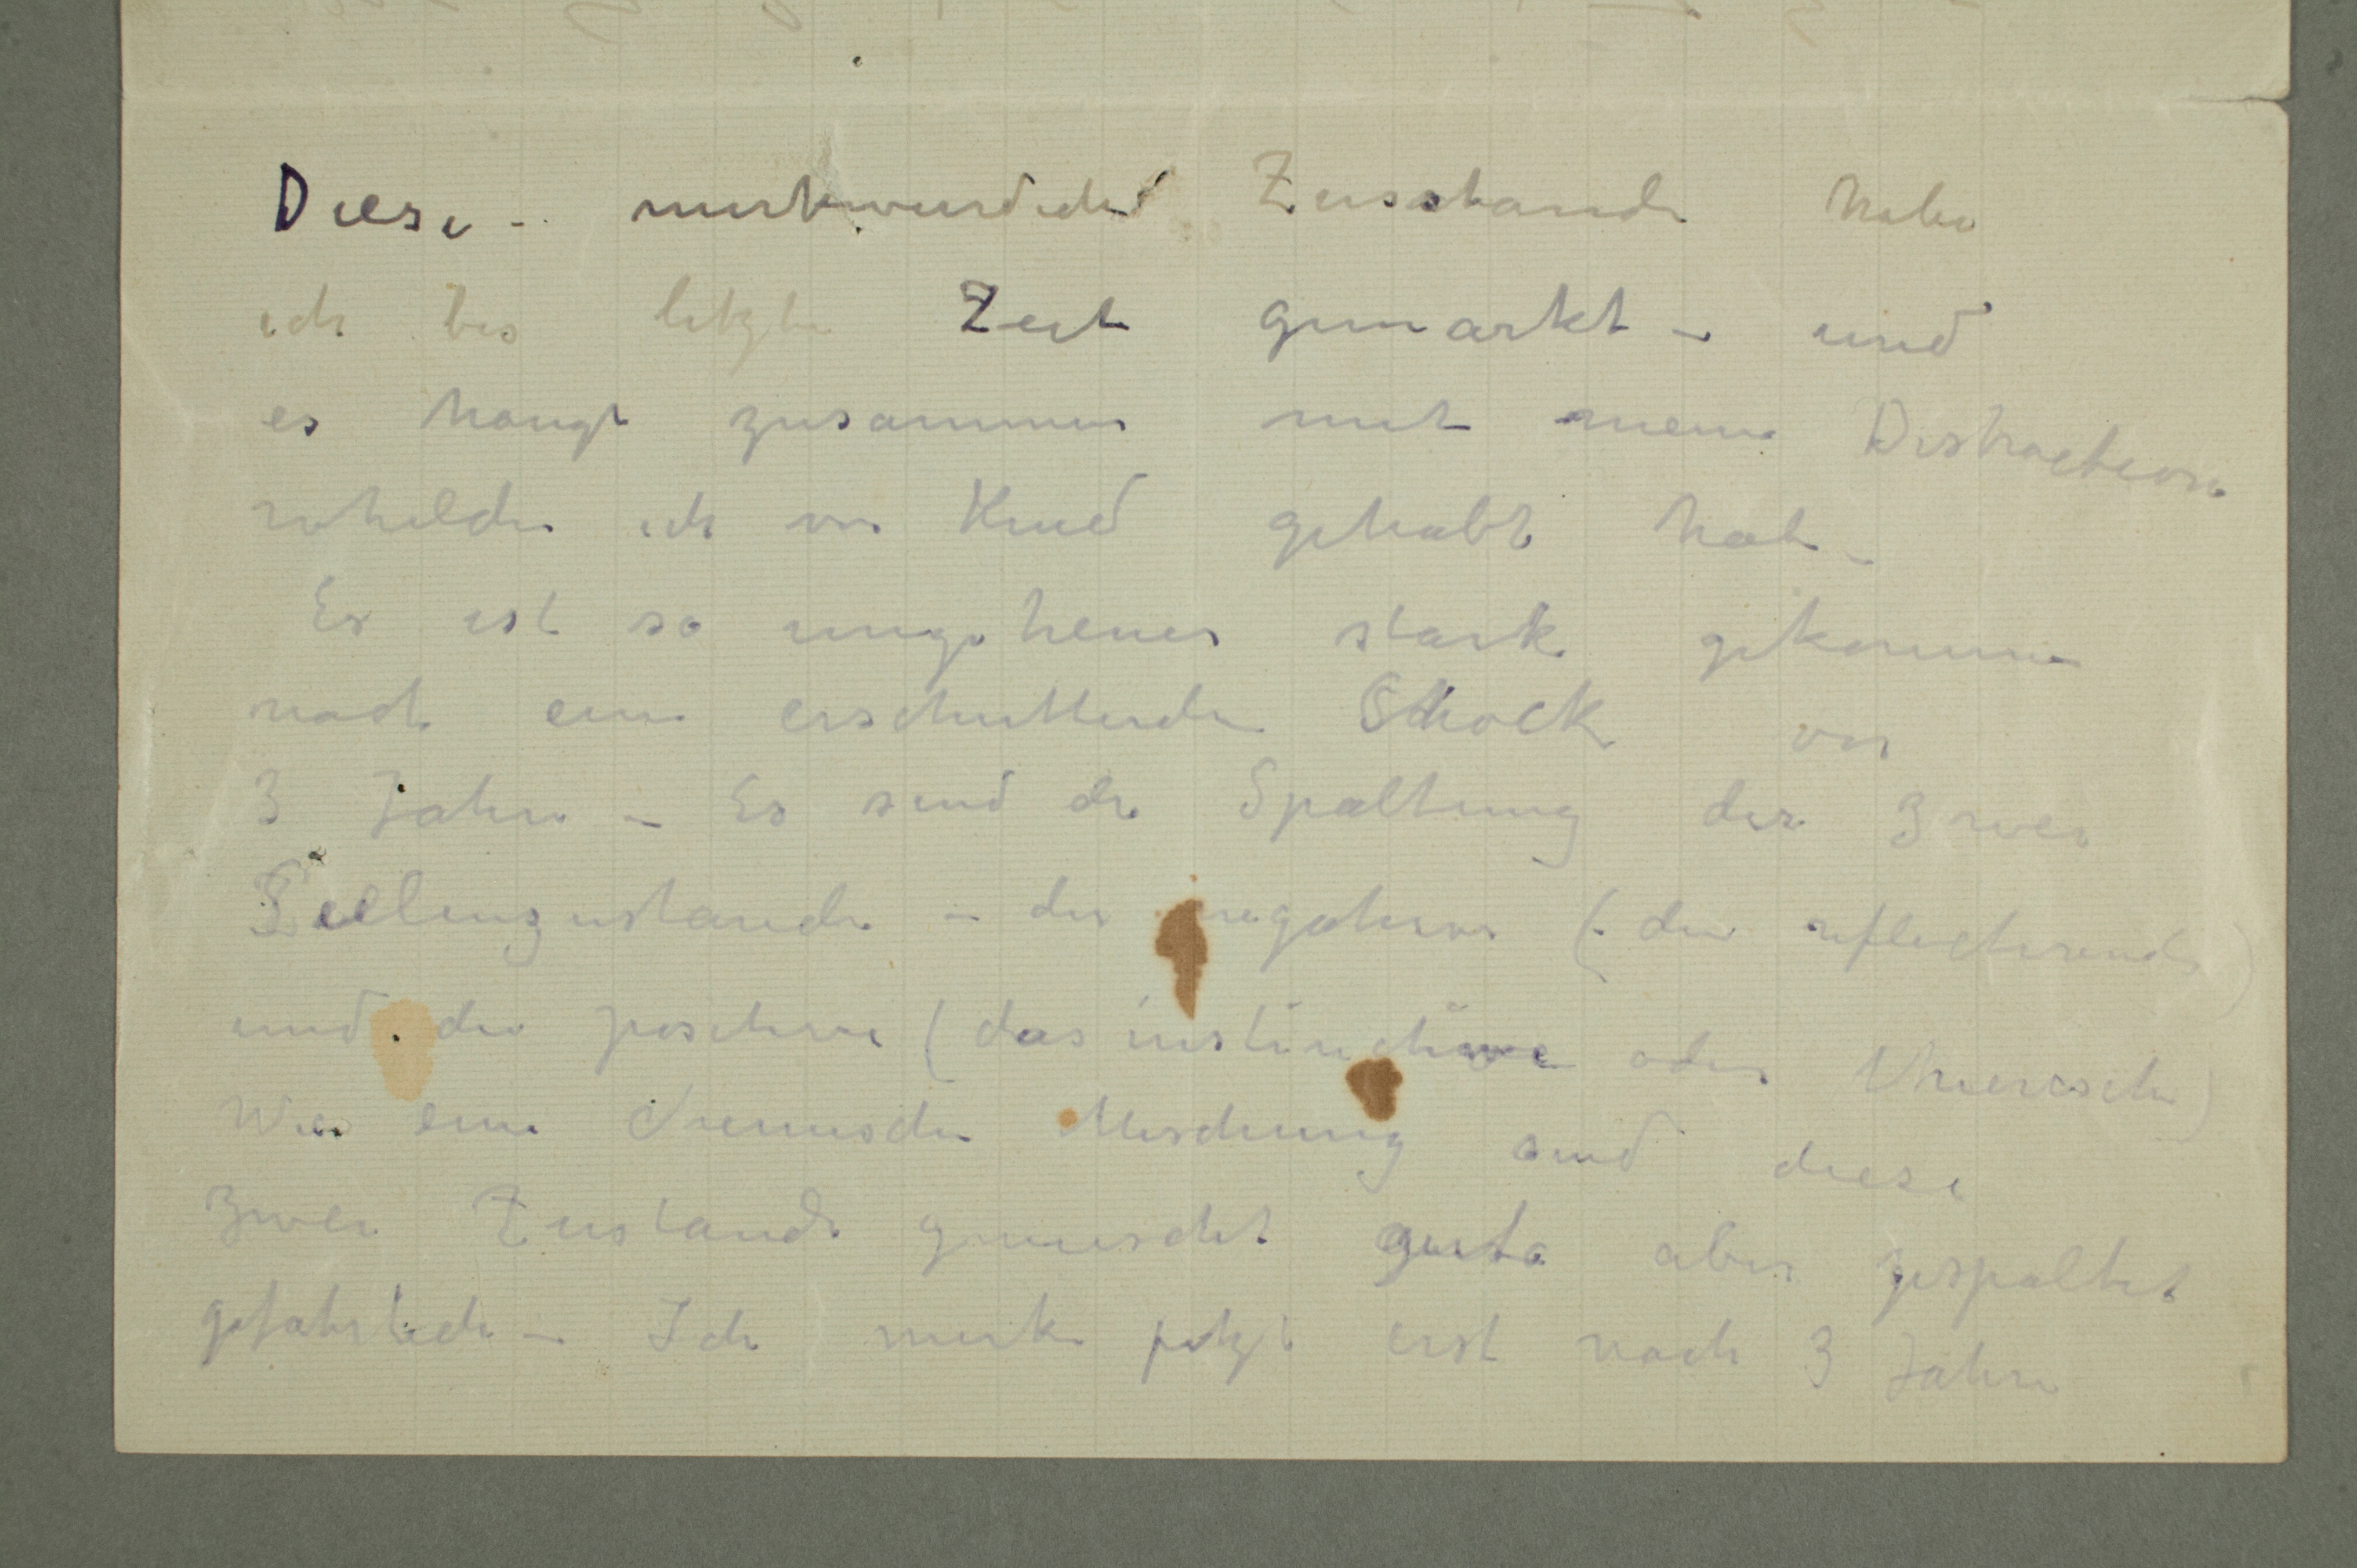 Diese - merkwurdiche Zusstande habe
ich bis letzte Zeit gemarkt - und
es hangt zusammen mit meine Distraction
whelche ich von Kind gehabt habe -
Es ist so ungeheuer stark gekommen
nach eine erschutternde Schock vor
3 Jahre - Es sind die Spaltung der zwei
Seelenzustande - die negative (die reflectirende)
und die positive (das instinctive oder )
Wie eine Mischung sind diese
zwei Zustande gemischt gute aber gespaltet
gefahrlich - Ich merke jetzt erst nach 3 Jahre